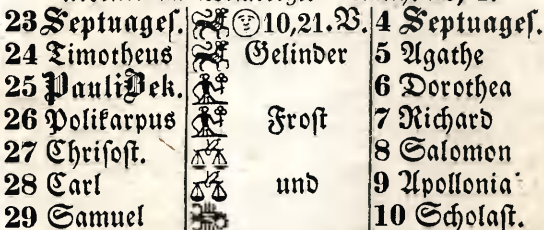 23 Septuages. 10,21.V. 4 Septuages.
24 Timotheus Gelinder 5 Agathe
25 Pauli Bek. 6 Dorothea
26 Polikarpus Frost 7 Richard
27 Chrisost. 8 Salomon
28 Carl und 9 Apollonia
29 Samuel 10 Scholast.